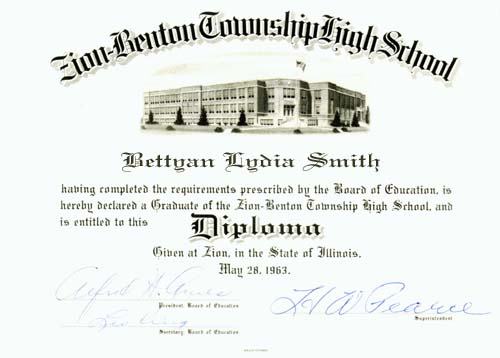 Zion-Benton Township High School
Bettyan Lydia Smith
having completed the requirements prescribed by the Board of Education, is
hereby declared a Graduate of the Zion-Benton Township High School, and
is entitled to this Diploma
Given at Zion, in the State of Illinois,
May 28, 1963.
Alfred H.
President, Board of Education
H W Pearce
Superintendent
Secretary, Board of Education